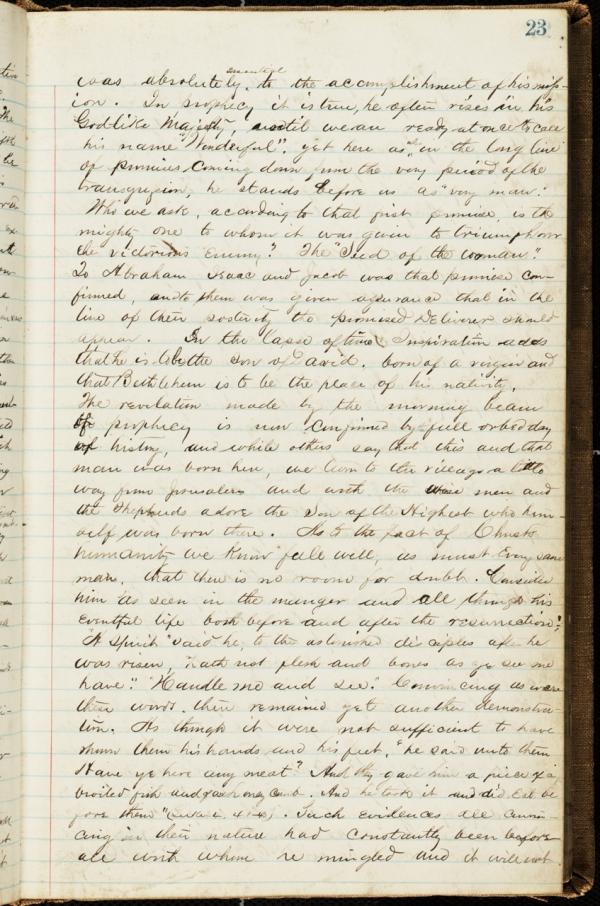 23
essential
was absolutely, to the accomplishment of his miss-
ion. In prophecy it is true, he often rises in his
Godlike Majesty, until we are ready at once to call
his name "Wonderful", yet here as in the long line
of promises coming down from the very period of the
transgression, he stands before us as "very man."
Who we ask, according to that first promise, is the
mighty one to whom it was given to triumph over
the victorious Enemy? The "Seed of the woman."
To Abraham Isaac and Jacob was that promise con-
firmed, and to them was given assurance that in the
line of their posterity the promised Deliverer should
appear. In the lapse of time Inspiration adds
that he is to be the son of David, born of a virgin and
that Bethlehem is to be the place of his nativity.
The revelation made by the morning beam
of prophecy is now confirmed by full orbed day
of history, and while others say that this and that
man was born here, we turn to the village a little
way from Jerusalem and with the wise men and
the Shepherds adore the Son of the Highest who him-
self was born there. As to the fact of Christs
humanity we know full well, as must Every sane
man, that there is no room for doubt. Consider
him as seen in the manger and all through his
eventful life both before and after the resurrection:
"A spirit" said he, to the astonished disciples after he
was risen, "hath not flesh and bones as ye see me
have." "Handle me and see." Convincing as were
these words, there remained yet another demonstra-
tion. As though it were not sufficient to have
shown them his hands and his feet, "he said unto them
Have ye here any meat? And they gave him a piece of a
broiled fish and of an honey comb. And he took it and did Eat be
fore them" (Luke 24). Such evidences all convin-
cing in their nature had constantly been before
all with whom he mingled and it will not